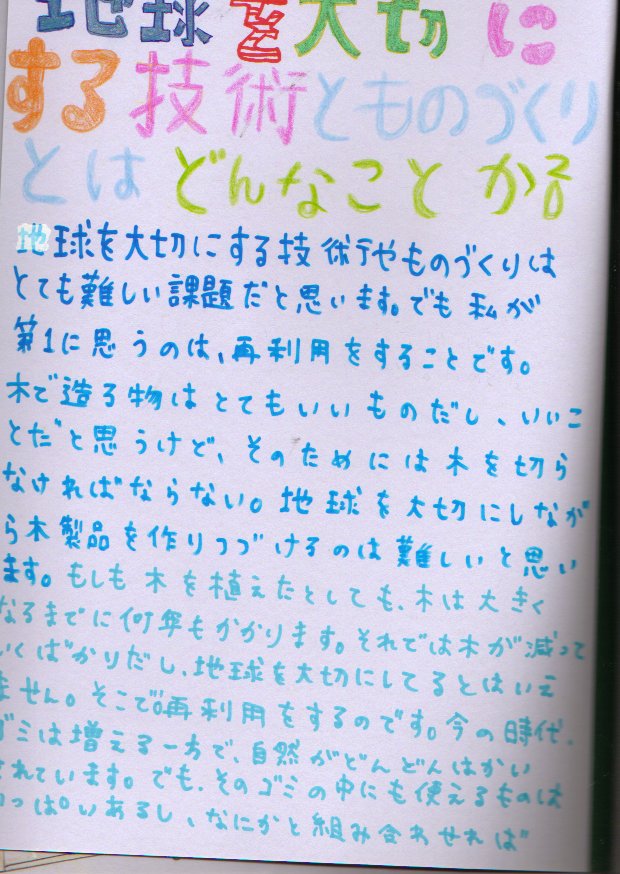 地球を大切に
する技術とものづくり
とはどんなことか?
地球を大切にする技術やものづくりは
とても難しい課題だと思います。でも私が
第1に思うのは、再利用をすることです。
木で造る物はとてもいいものだし、いいこ
とだと思うけど、そのためには木を切ら
なければならない。地球を大切にしなが
ら木製品を作りつづけるのは難しいと思い
ます。もしも木を植えたとしても、木は大きく
なるまでに何年もかかります。それでは木が減って
いくばかりだし、地球を大切にしてるとはいえ
ません。そこで再利用をするのです。今の時代、
ゴミは増える一方で、自然がどんどんはかい
されています。でも、そのゴミの中にも使えるものは
いっぱいあるし、なにかと組み合わせれば